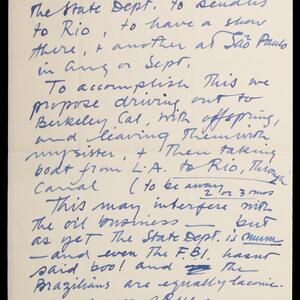 the State Dept. to send us
to Rio, to have a show
there, + another at São Paulo
in Aug or Sept.
To accomplish this we
propose driving out to
Berkeley Cal, with offspring,
and leaving them with
my sister, + then taking
boat from L.A. to Rio, through
Canal (to be away 2 or 3 mos
This may interfere with
the oil business — but
as yet the State Dept. is mum
— and even the F.B.I. hasnt
said boo! and the
Brazilians are equally laconic.